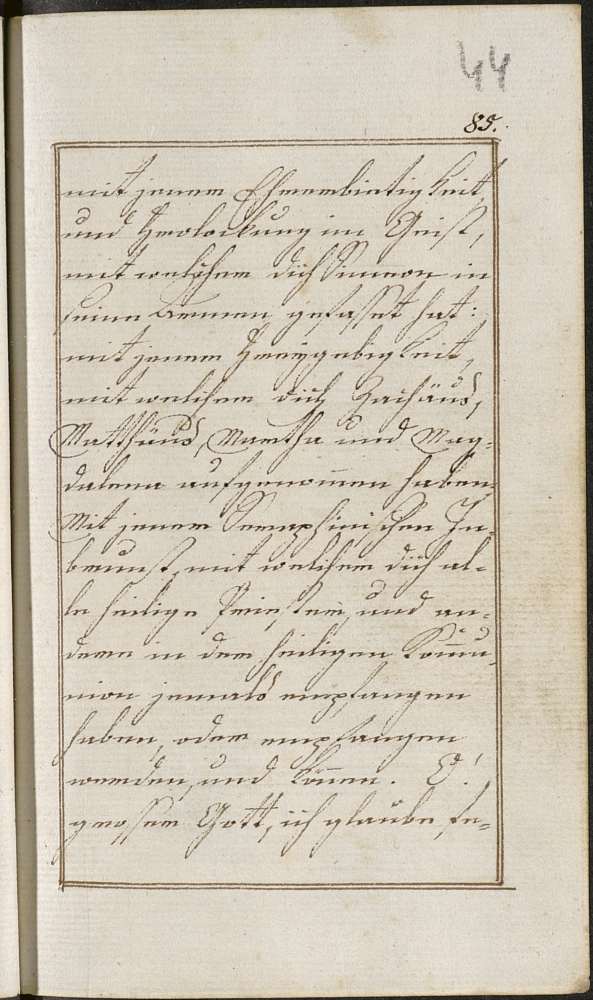 44
85.
mit jenner Ehrenbietigkeit
und Frolockung im Geist,
mit welcher dich Simeon in
seine Armen gefasset hat:
mit jenner Freygebigkeit,
mit welcher dich Zachäus,
Matthäus, Martha und Mag-
dalena aufgenom̄en haben.
Mit jenner Seraphinischen In-
brunst, mit welcher dich al-
le heilige Priester, und an-
dere in der heiligen Com̄u-
nion jemals empfangen
haben, oder empfangen
werden, und kön̄en. O!
grosser Gott, ich glaube fe-